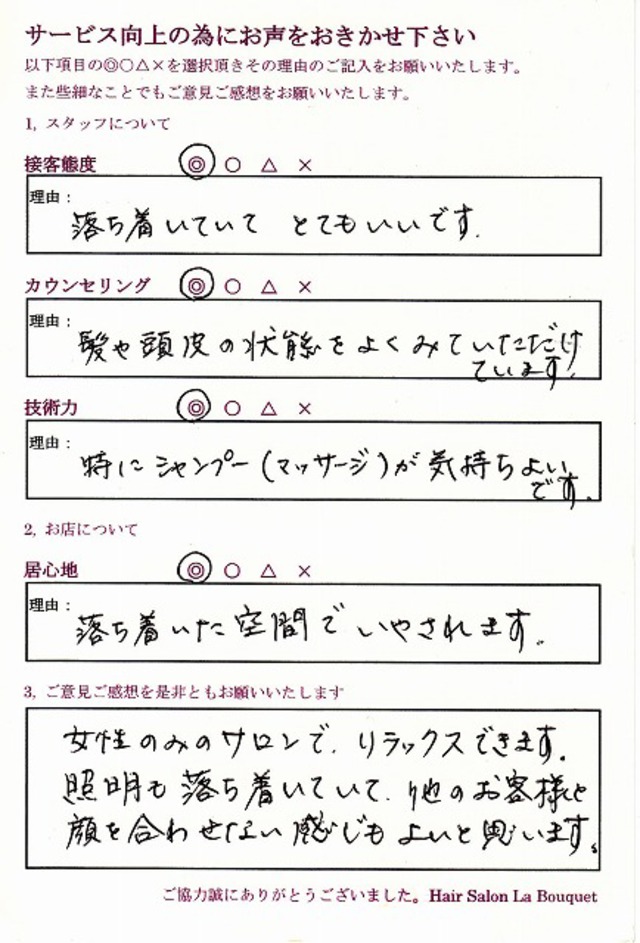 サービス向上の為にお声をおきかせ下さい
以下項目の◎○△×を選択頂きその理由のご記入をお願いいたします。
また些細なことでもご意見ご感想をお願いいたします。
1, スタッフについて
接客態度 ◎ ○ △ ×
理由：
落ち着いていて とてもいいです.
カウンセリング ◎ ○ △ ×
理由：
髪や頭皮の状態をよくみていただけ
ています.
技術力 ◎ ○ △ ×
理由：
特にシャンプー(マッサージ)が気持ちよい
です.
2, お店について
居心地 ◎ ○ △ ×
理由：
落ち着いた空間でいやされます.
3, ご意見ご感想を是非ともお願いいたします
女性のみのサロンで、リラックスできます.
照明も落ち着いていて、他のお客様と
顔を合わせない感じもよいと思います。
ご協力誠にありがとうございました。Hair Salon La Bouquet